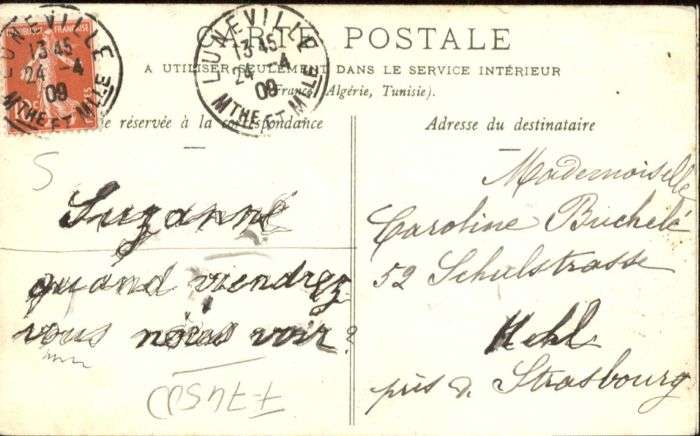 CARTE POSTALE
A UTILISER SEULEMENT DANS LE SERVICE INTÉRIEUR
(France, Algérie, Tunisie).
LUNEVILLE
13 45
24 - 4
09
MTHE ET MLLE
LUNEVILLE
13 45
24 - 4
09
MTHE ET MLLE
réservée à la correspondance
Suzanne
quand viendrez
vous nous voir ?
Adresse du destinataire
Mademoiselle
Caroline Buchele
52 Schulstrasse
Kehl
près d. Strasbourg